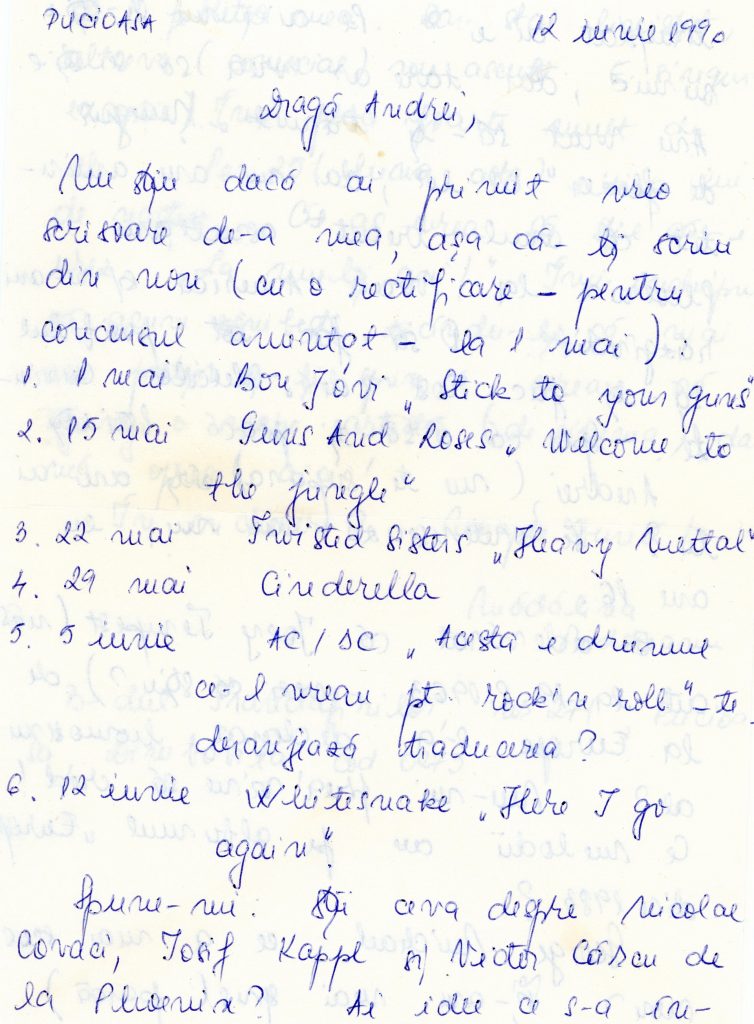 PUCIOASA 12 iunie 1990
Dragă Andrei,
Nu știu dacă ai primit vreo
scrisoare de-a mea, așa că-ți scriu
din nou (cu o rectificare - pentru
concursul amintit - la 1 mai):
1. 1 mai Bon Jóvi „Stick to your guns"
2. 15 mai Guns And Roses „Welcome to
the jungle"
3. 22 mai Twisted Sisters „Heavy Mettal"
4. 29 mai Cinderella
5. 5 iunie AC/DC „Acesta e drumul
ce-l vreau pt. rock'n roll" - te
deranjează traducerea?
6. 12 iunie Whitesnake „Here I go
again".
Spune-mi: Știi ceva despre Nicolae
Covaci, Iosif Kappl și Victor Cârcu de
la Phoenix? Ai idee ce s-a în-